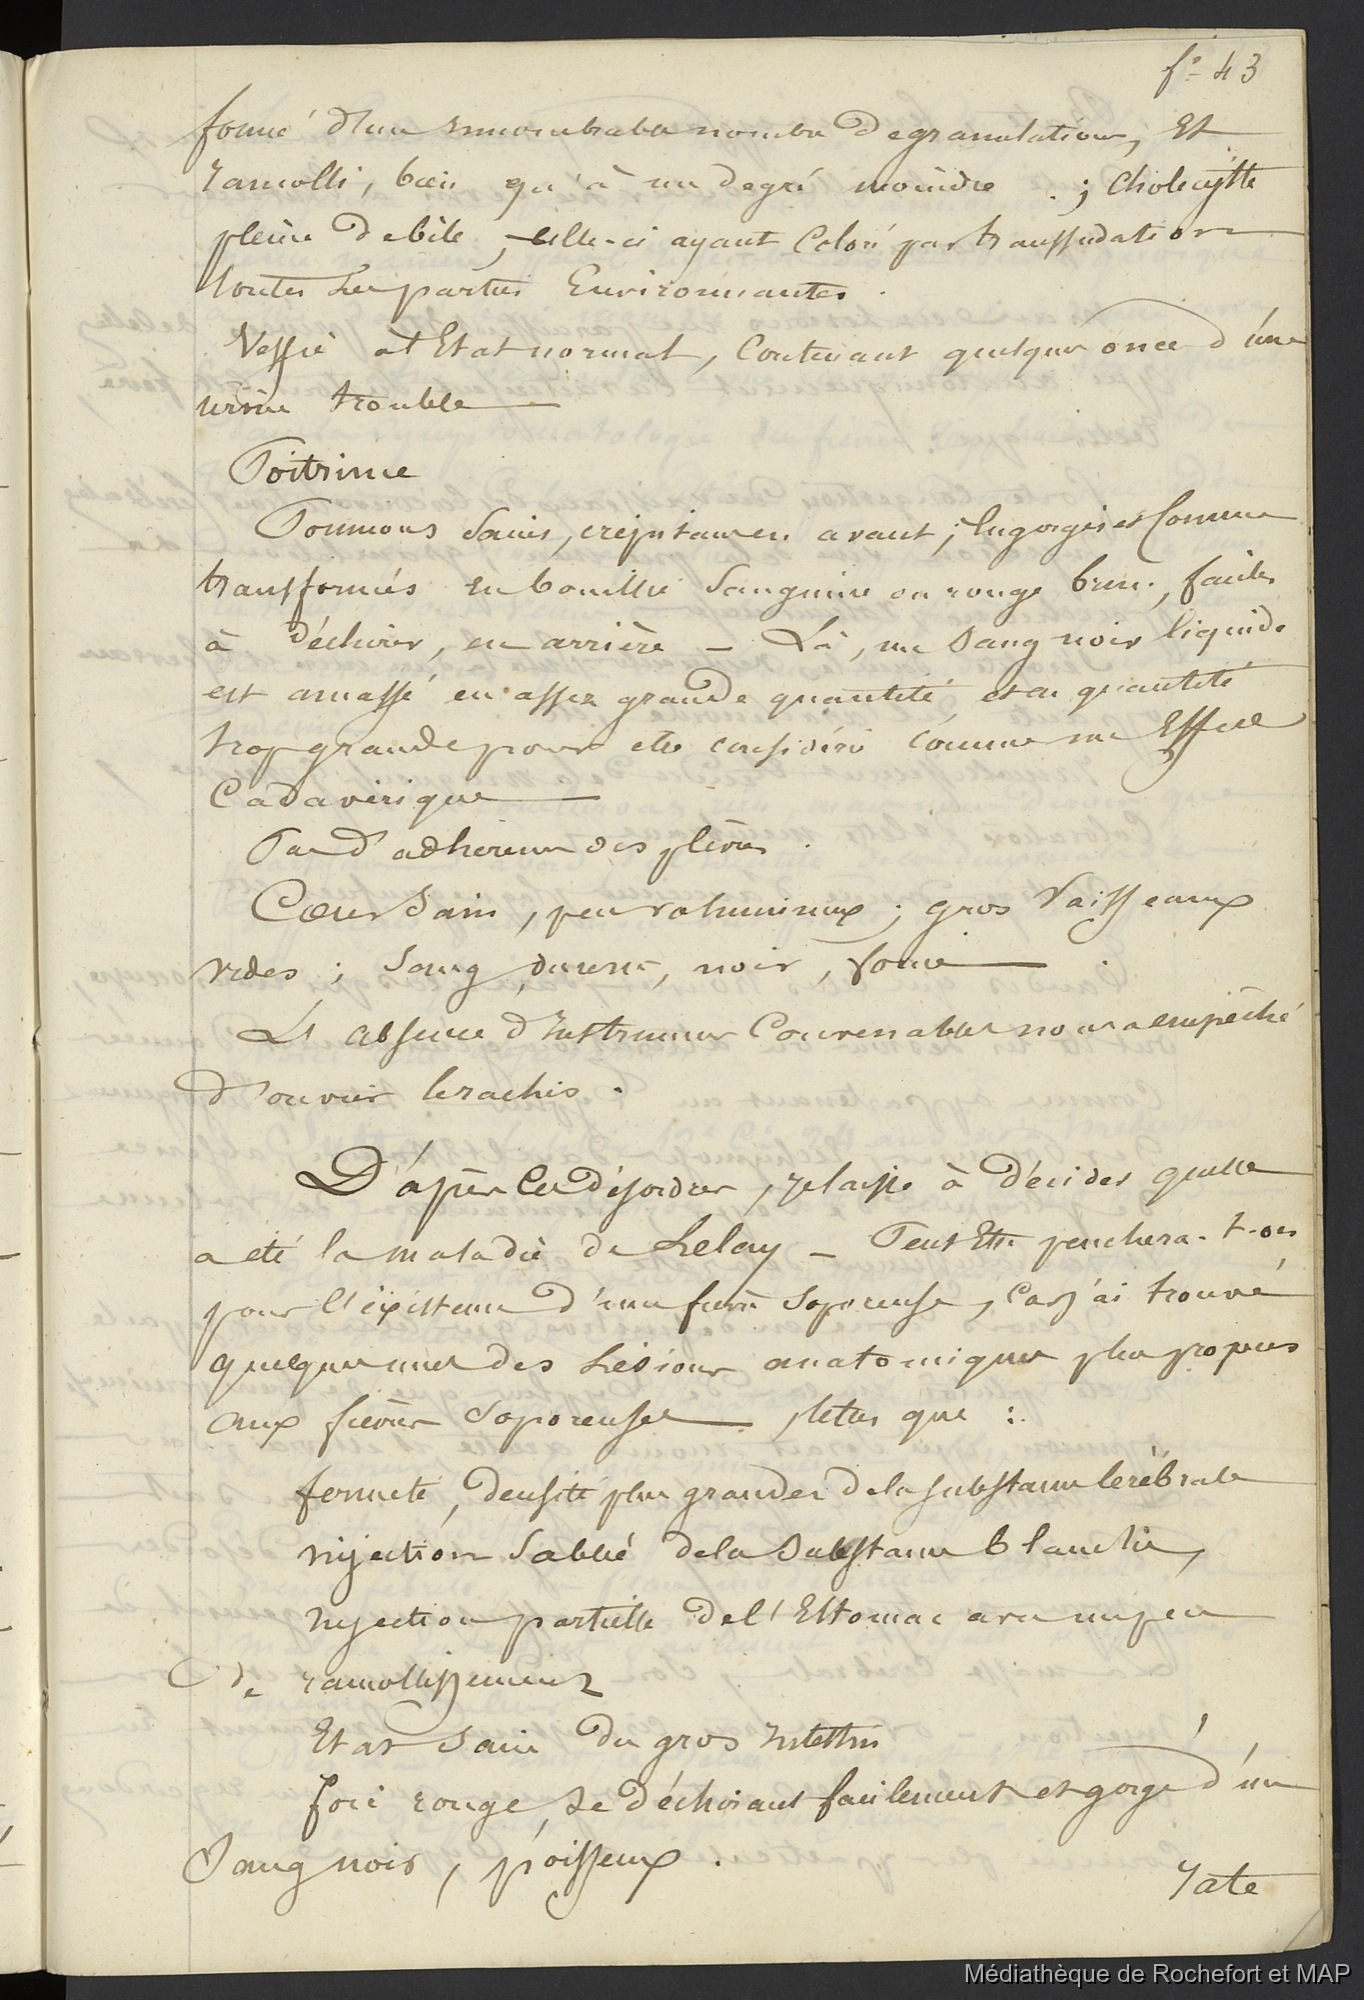 fo 43
formé d'un innombrable nombre de granulations, Et
ramolli, bien qu'à un degré moindre . ; Cholecyste
pleine de bile, celle-ci ayant Coloré par transsudation
toutes les parties Environnantes .
Vessie à l'Etat normal, Contenant quelques onces d'une
urine trouble
Poitrine
Poumons Sains, crépitans en avant ; Engorgés et Comme
transformés en bouillie Sanguine ou rouge brun, faciles
à déchirer, en arrière – Là, un Sang noir liquide
est amassé en assez grande quantité, et en quantité
trop grande pour être considéré comme un Effet
Cadavérique
Pas d'adhérence des plèvres .
Cœur Sain, peu volumineux ; gros Vaisseaux
vides ; Sang, noir,
L'absence d'Instrumens Convenables nous a empêché
d'ouvrir le rachis .
D'après Ces désordres, je laisse à décider quelle
a été la maladie de Lelay – Peut Etre penchera-t-on
pour l'existence d'une fièvre Soporeuse, Car j'ai trouvé
quelques unes des Lésions anatomiques plus propres
aux fièvres Soporeuses telles que :
fermeté, densité plus grandes de la substance Cérébrale
injection Sablée de la Substance blanche,
Injection partielle de l'Estomac avec un peu
de ramollissement
Etat Sain du gros Intestin
foie rouge, se déchirant facilement et gorgé d'un
Sang noir, poisseux .
rate
Médiathèque de Rochefort et MAP